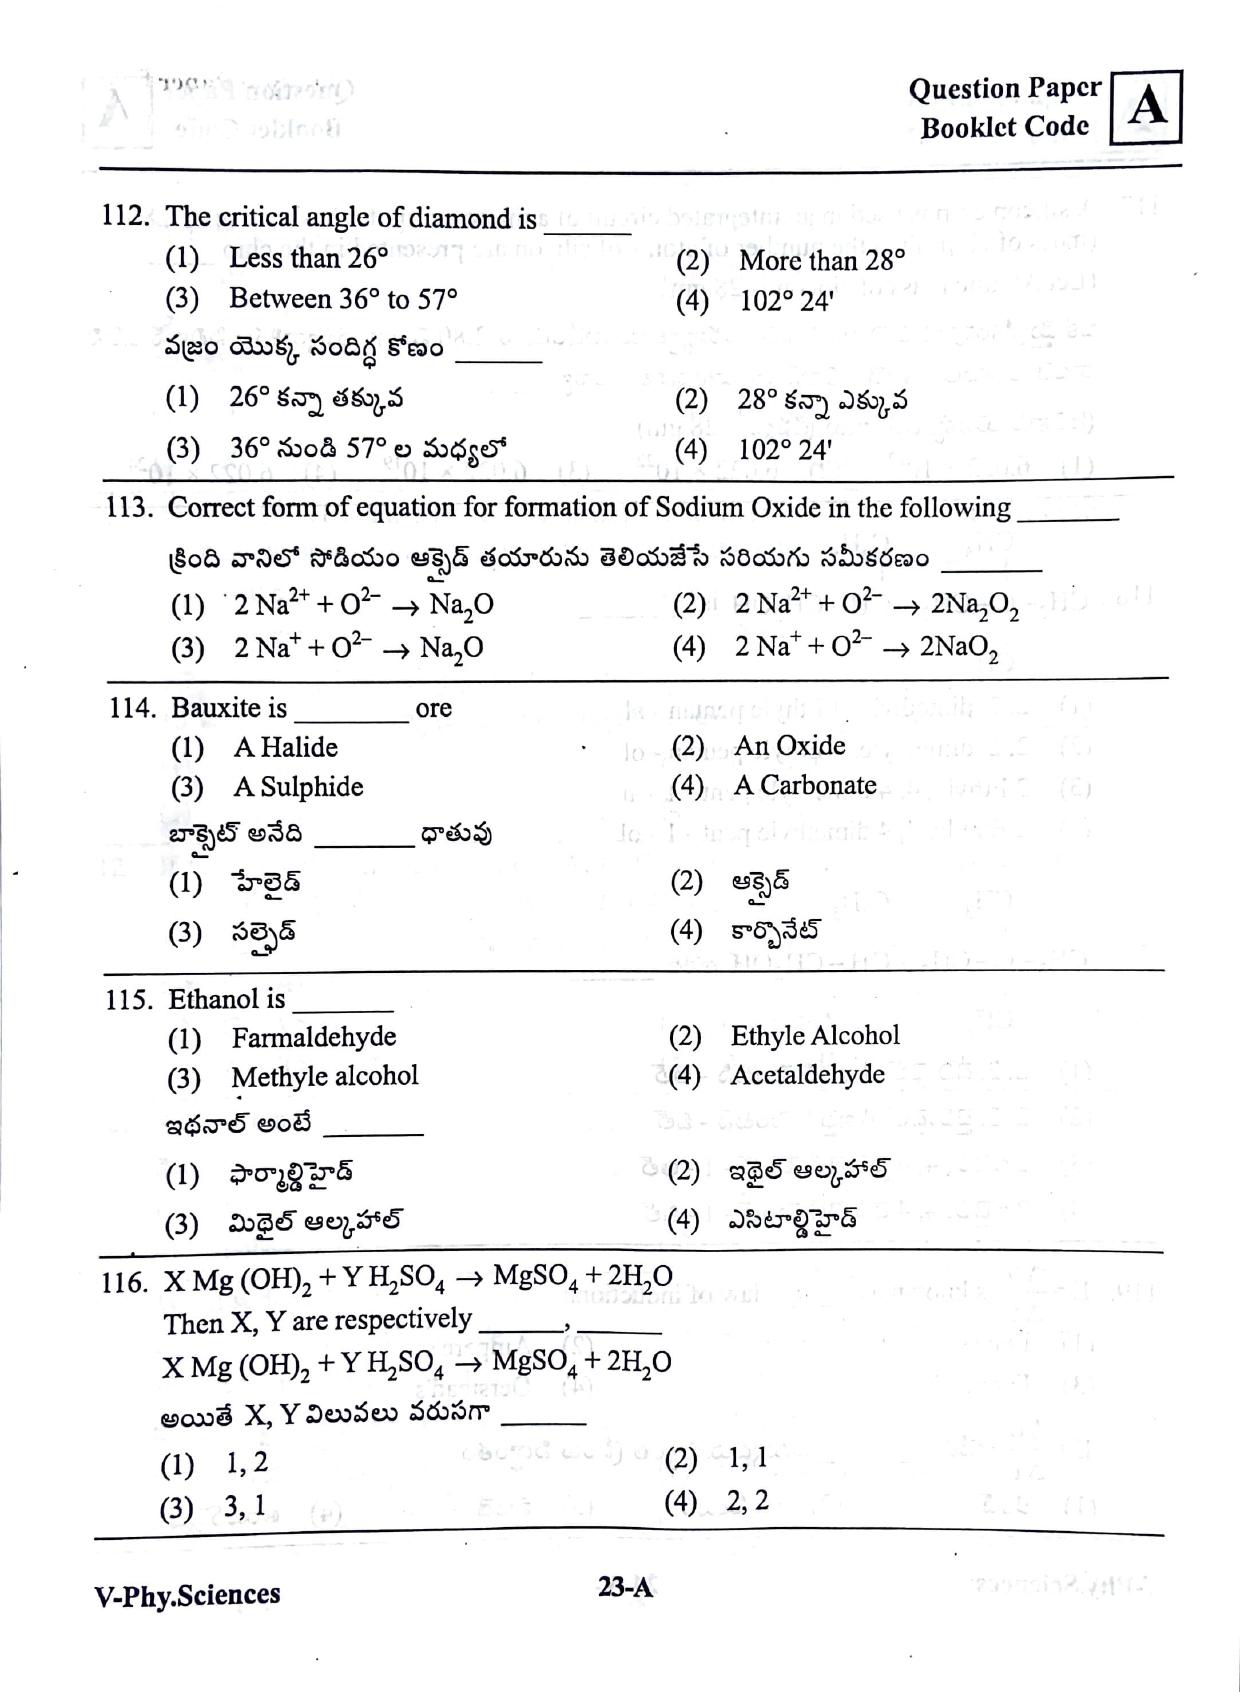 Question Paper
Booklet Code
A
112. The critical angle of diamond is ______
(1) Less than 26° (2) More than 28°
(3) Between 36° to 57° (4) 102° 24'
వజ్రం యొక్క సందిగ్ధ కోణం ______
(1) 26° కన్నా తక్కువ (2) 28° కన్నా ఎక్కువ
(3) 36° నుండి 57° ల మధ్యలో (4) 102° 24'
113. Correct form of equation for formation of Sodium Oxide in the following ______
క్రింది వానిలో సోడియం ఆక్సైడ్ తయారును తెలియజేసే సరియగు సమీకరణం ______
(1) 2 Na²⁺ + O²⁻ → Na₂O (2) 2 Na²⁺ + O²⁻ → 2Na₂O₂
(3) 2 Na⁺ + O²⁻ → Na₂O (4) 2 Na⁺ + O²⁻ → 2NaO₂
114. Bauxite is ______ ore
(1) A Halide (2) An Oxide
(3) A Sulphide (4) A Carbonate
బాక్సైట్ అనేది ______ ధాతువు
(1) హేలైడ్ (2) ఆక్సైడ్
(3) సల్ఫైడ్ (4) కార్బొనేట్
115. Ethanol is ______
(1) Farmaldehyde (2) Ethyle Alcohol
(3) Methyle alcohol (4) Acetaldehyde
ఇథనాల్ అంటే ______
(1) ఫార్మాల్డిహైడ్ (2) ఇథైల్ ఆల్కహాల్
(3) మిథైల్ ఆల్కహాల్ (4) ఎసిటాల్డిహైడ్
116. X Mg (OH)₂ + Y H₂SO₄ → MgSO₄ + 2H₂O
Then X, Y are respectively ______, ______
X Mg (OH)₂ + Y H₂SO₄ → MgSO₄ + 2H₂O
అయితే X, Y విలువలు వరుసగా ______
(1) 1, 2 (2) 1, 1
(3) 3, 1 (4) 2, 2
V-Phy.Sciences 23-A